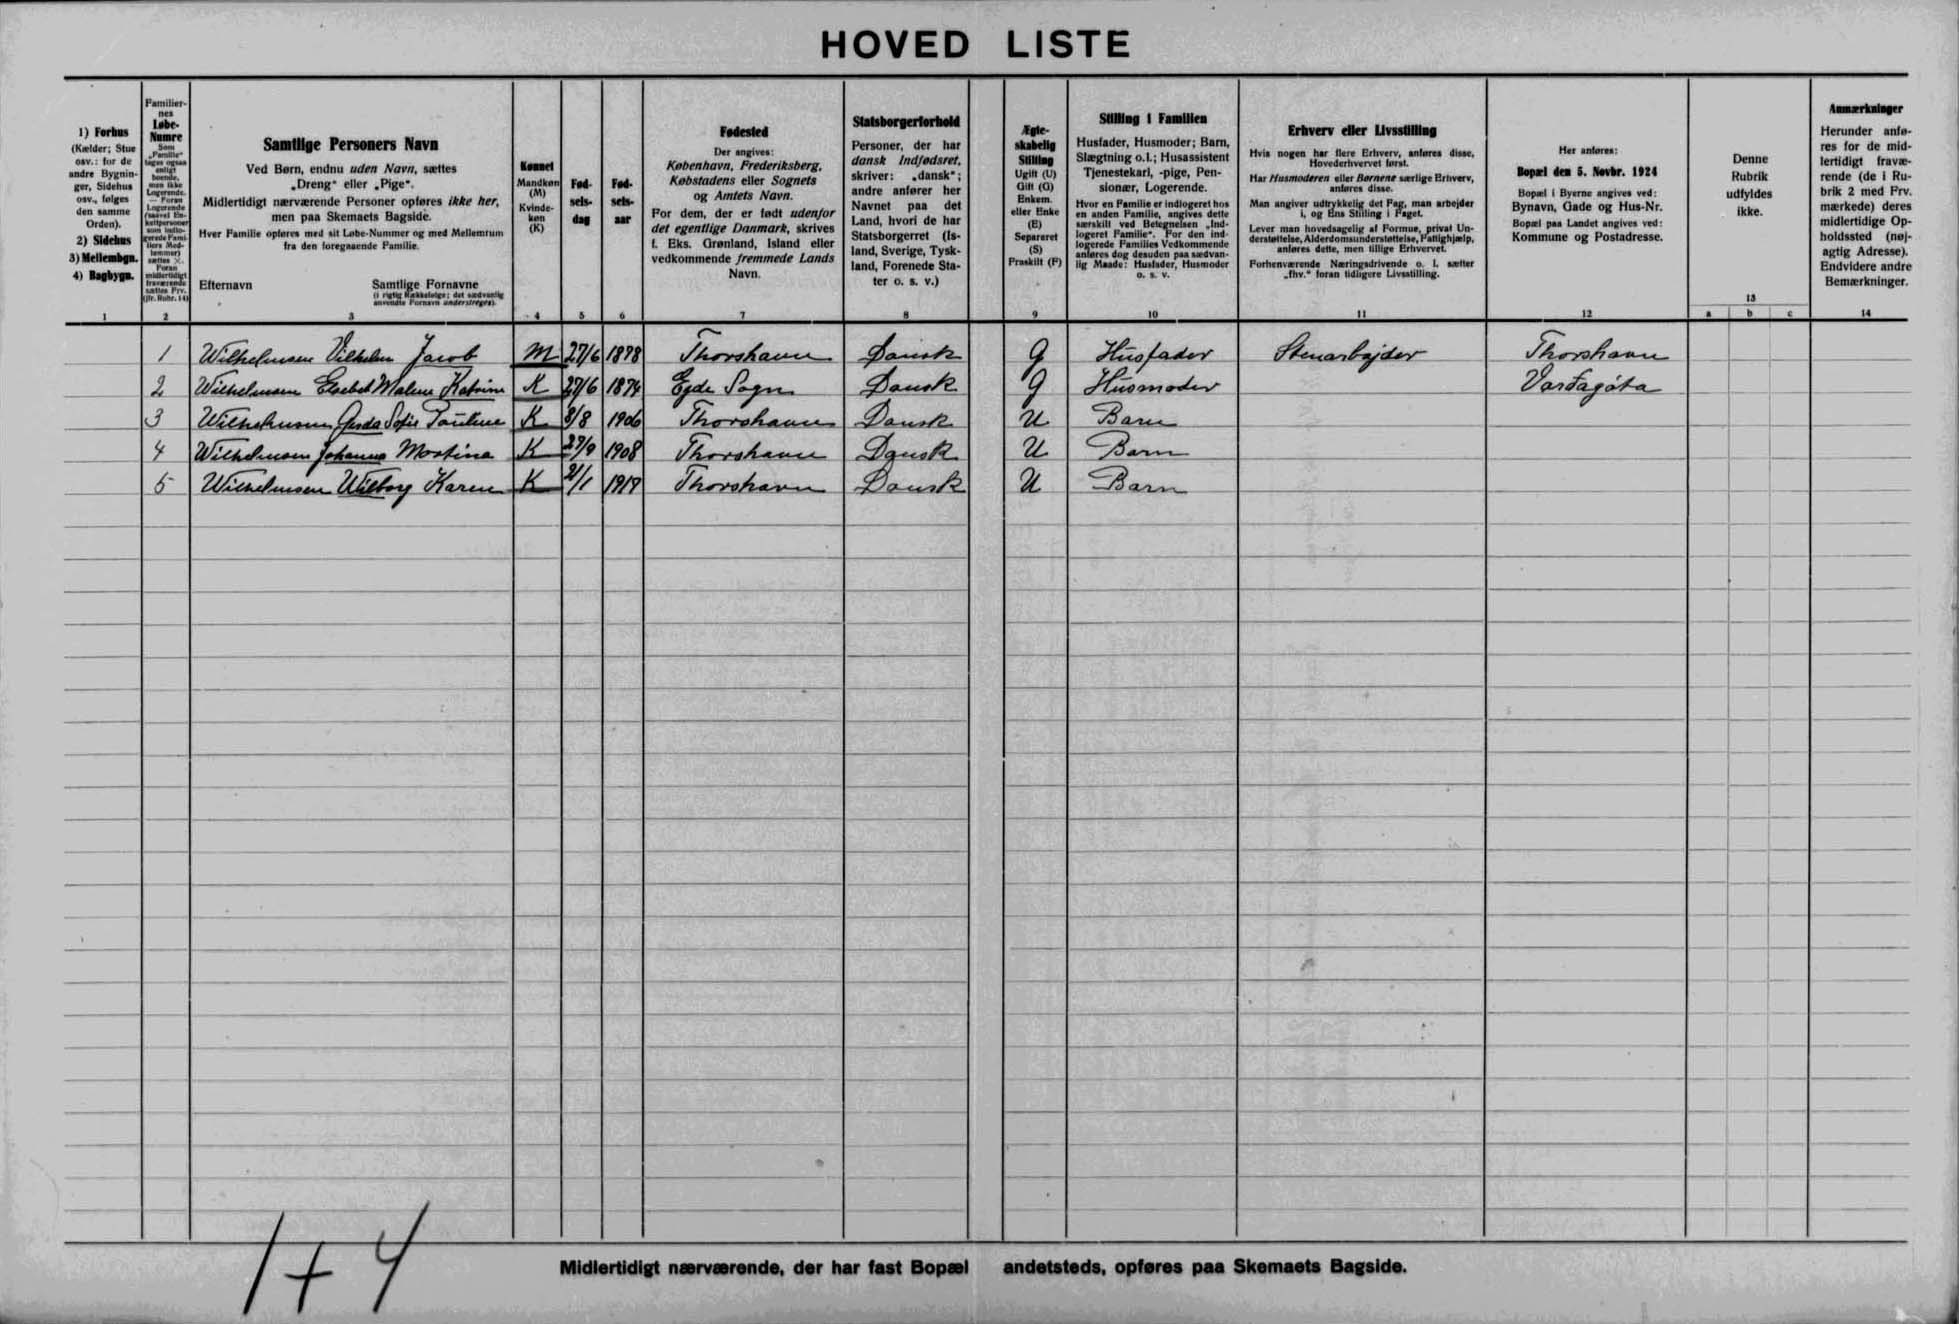 HOVED LISTE
1) Forhus
(Kælder; Stue
osv.: for de
andre Bygnin-
ger, Sidehus
osv., følges
den samme
Orden).
2) Sidehus
3) Mellembgn.
4) Bagbygn.
1
Familier-
nes
Løbe-
Numre
Som
„Familie“
tages ogsaa
enligt
boende,
men ikke
Logerende.
— Foran
Logerende
(saavel En-
keltpersoner
som indlo-
gerede Fami-
liers Med-
lemmer)
sættes ×.
Foran
midlertidigt
fraværende
sættes Frv.
(jfr. Rubr. 14)
2
Samtlige Personers Navn
Ved Børn, endnu uden Navn, sættes
„Dreng“ eller „Pige“.
Midlertidigt nærværende Personer opføres ikke her,
men paa Skemaets Bagside.
Hver Familie opføres med sit Løbe-Nummer og med Mellemrum
fra den foregaaende Familie.
Efternavn Samtlige Fornavne
(i rigtig Rækkefølge; det sædvanlig
anvendte Fornavn understreges).
3
Kønnet
Mandkøn
(M)
Kvinde-
køn
(K)
4
Fød-
sels-
dag
5
Fød-
sels-
aar
6
Fødested
Der angives:
København, Frederiksberg,
Købstadens eller Sognets
og Amtets Navn.
For dem, der er født udenfor
det egentlige Danmark, skrives
f. Eks. Grønland, Island eller
vedkommende fremmede Lands
Navn.
7
Statsborgerforhold
Personer, der har
dansk Indfødsret,
skriver: „dansk“;
andre anfører her
Navnet paa det
Land, hvori de har
Statsborgerret (Is-
land, Sverige, Tysk-
land, Forenede Sta-
ter o. s. v.)
8
Ægte-
skabelig
Stilling
Ugift (U)
Gift (G)
Enkem.
eller Enke
(E)
Separeret
(S)
Fraskilt (F)
9
Stilling i Familien
Husfader, Husmoder; Barn,
Slægtning o.l.; Husassistent
Tjenestekarl, -pige, Pen-
sionær, Logerende.
Hvor en Familie er indlogeret hos
en anden Familie, angives dette
særskilt ved Betegnelsen „Ind-
logeret Familie“. For den ind-
logerede Families Vedkommende
anføres dog desuden paa sædvan-
lig Maade: Husfader, Husmoder
o. s. v.
10
Erhverv eller Livsstilling
Hvis nogen har flere Erhverv, anføres disse,
Hovederhvervet først.
Har Husmoderen eller Børnene særlige Erhverv,
anføres disse.
Man angiver udtrykkelig det Fag, man arbejder
i, og Ens Stilling i Faget.
Lever man hovedsagelig af Formue, privat Un-
derstøttelse, Alderdomsunderstøttelse, Fattighjælp,
anføres dette, men tillige Erhvervet.
Forhenværende Næringsdrivende o. l. sætter
„fhv.“ foran tidligere Livsstilling.
11
Her anføres:
Bopæl den 5. Novbr. 1924
Bopæl i Byerne angives ved:
Bynavn, Gade og Hus-Nr.
Bopæl paa Landet angives ved:
Kommune og Postadresse.
12
Denne
Rubrik
udfyldes
ikke.
13
a b c
Anmærkninger
Herunder anfø-
res for de mid-
lertidigt fravæ-
rende (de i Ru-
brik 2 med Frv.
mærkede) deres
midlertidige Op-
holdssted (nøj-
agtig Adresse).
Endvidere andre
Bemærkninger.
14
1 Wilhelmsen Vilhelm Jacob M 27/6 1878 Thorshavn Dansk G Husfader Stenarbejder Thorshavn
2 Wilhelmsen Elsebet Malene Katrine K 27/6 1874 Ejde Sogn Dansk G Husmoder Varðagøta
3 Wilhelmsen Gerda Sofie Pauline K 8/8 1906 Thorshavn Dansk U Barn
4 Wilhelmsen Johanna Mortina K 27/9 1908 Thorshavn Dansk U Barn
5 Wilhelmsen Wilborg Karen K 21/1 Thorshavn Dansk U Barn
Midlertidigt nærværende, der har fast Bopæl andetsteds, opføres paa Skemaets Bagside.
1+4